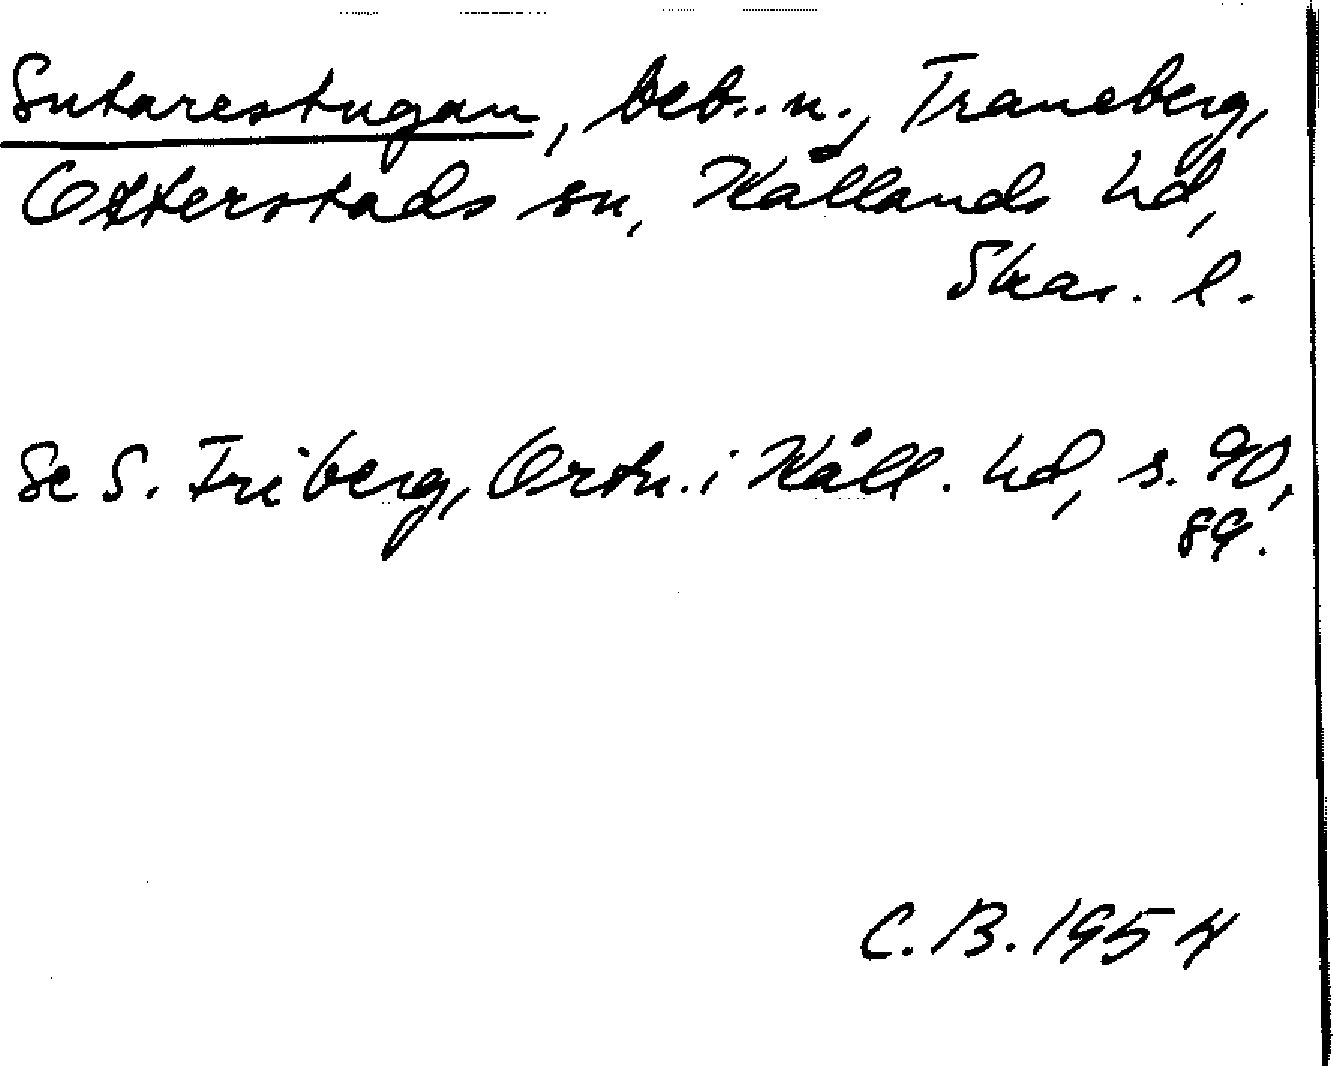 Sutarestugan, beb.n., Traneberg,
Otterstads sn, Kållands hd,
Skar. l.
Se S. Friberg, Ortn. i Kåll. hd, s. 90,
89.
C.B. 1954